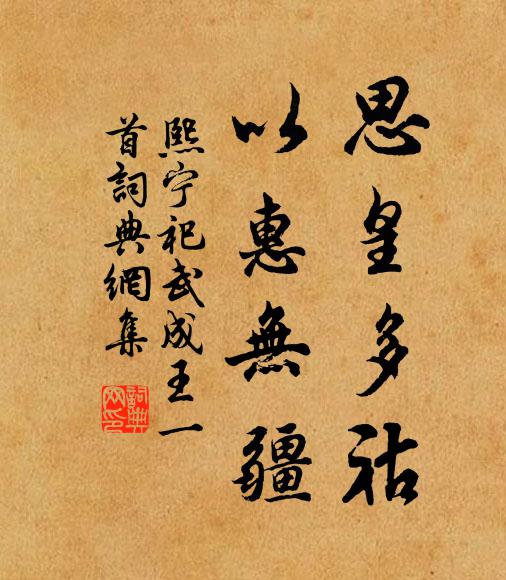 思皇多祜
以惠無疆
熙宁祀武成王一
首詞典網集
詞典网印